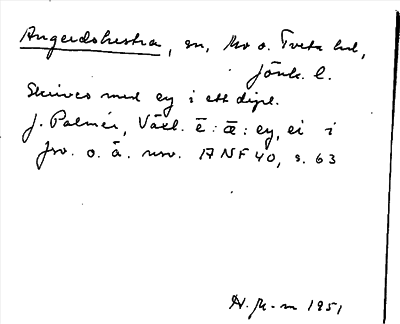 Angerdshestra, sn, Mo o. Tveta hd,
Jönk. l.
Skrives med ey i ett dipl.
J. Palmér, Växl. ē : ǣ : ey, ei i
fsv. o. ä. nsv. ANF 40, s. 63
1951